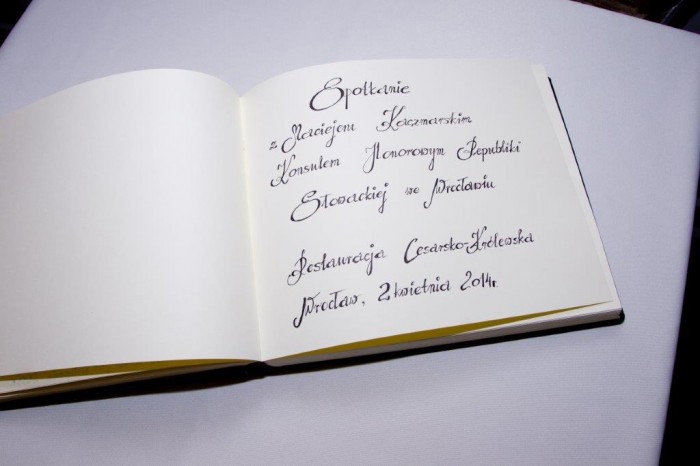 Spotkanie
z Maciejem Kaczmarskim
Konsulem Honorowym Republiki
Słowackiej we Wrocławiu
Restauracja Cesarsko-Królewska
Wrocław, 2 kwietnia 2014r.